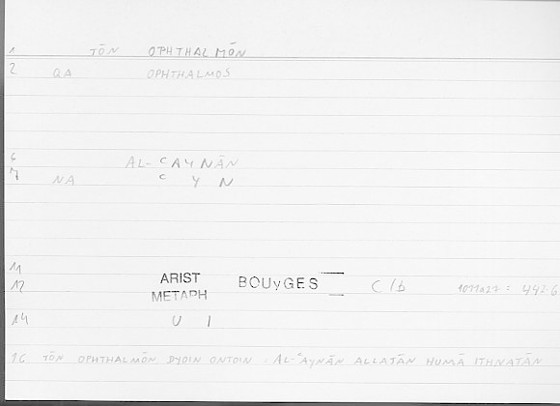 1 TŌN OPHTHALMŌN
2 QA OPHTHALMOS
6 AL-ʿAYNĀN
7 NA ʿ Y N
11
12 ARIST METAPH BOUyGES C/b : 442.6
14 U 1
16 TŌN OPHTHALMŌN DYOIN ONTOIN - AL-ʿAYNĀN ALLATĀN HUMĀ ITHNATĀN